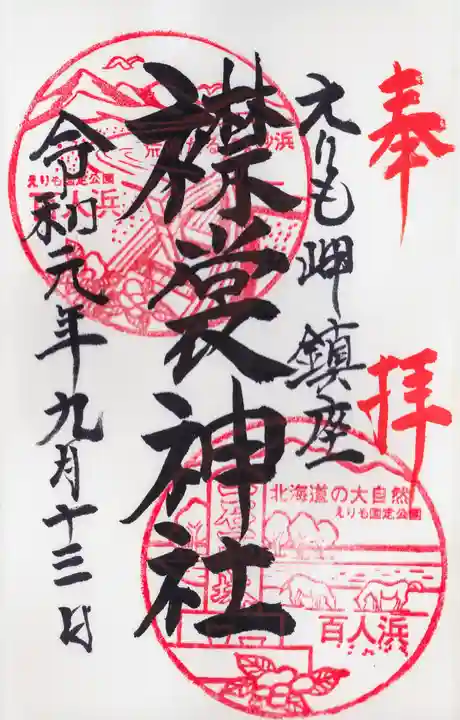 奉拝
えりも岬鎮座
襟裳神社
令和元年九月十三日
砂浜
えりも国定公園
百人浜
北海道の大自然
えりも国定公園
百人浜